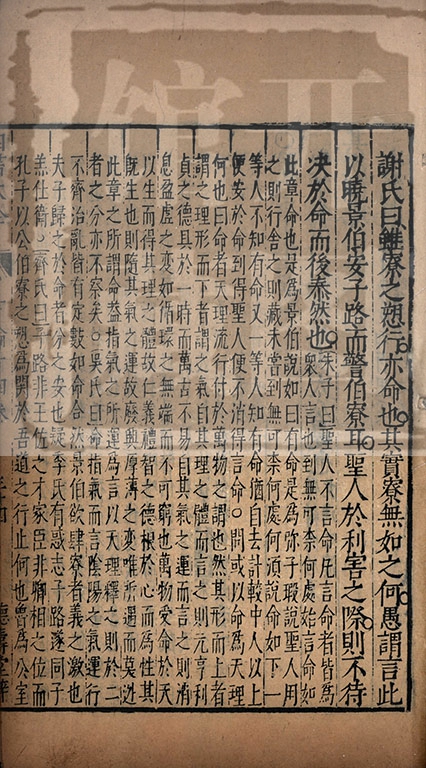 謝氏曰雖寮之愬行亦命也其實寮無如之何愚謂言此
以曉景伯安子路而警伯寮耳聖人於利害之際則不待
決於命而後泰然也
朱子曰聖人不言命凡言命者皆爲
衆人言也到無可柰何處始言命如
此章命也是爲景伯說如曰有命是爲弥子瑕說聖人用
之則行舍之則藏未嘗到無可柰何處何須說命如下一
等人不知有命又一等人知有命猶自去計較中人以上
便安於命到得聖人便不消得言命○問或以命爲天理
何也曰命者天理流行付於萬物之謂也然其形而上者
謂之理形而下者謂之氣自其理之體而言之則元亨利
貞之德具於一時而萬古不易自其氣之運而言之則消
息盈虛之變如循環之無端而不可窮也萬物受命於天
以生而得其理之體故仁義禮智之德根於心而爲性其
旣生也則隨其氣之運故廢興厚薄之變唯所遇而莫逃
此章之所謂命蓋指氣之所運爲言以天理釋之則於二
者之分亦不察矣○吳氏曰命指氣而言陰陽之氣運行
不齊治亂皆有定數如命令然景伯欲肆寮者義之激也
夫子歸之於命者分之安也疑季氏有惑志子路遂同子
羔仕衛○齊氏曰子路非王佐之才家臣非卿相之位而
孔子以公伯寮之愬爲關於吾道之行止何也曾爲公室
德壽堂梓